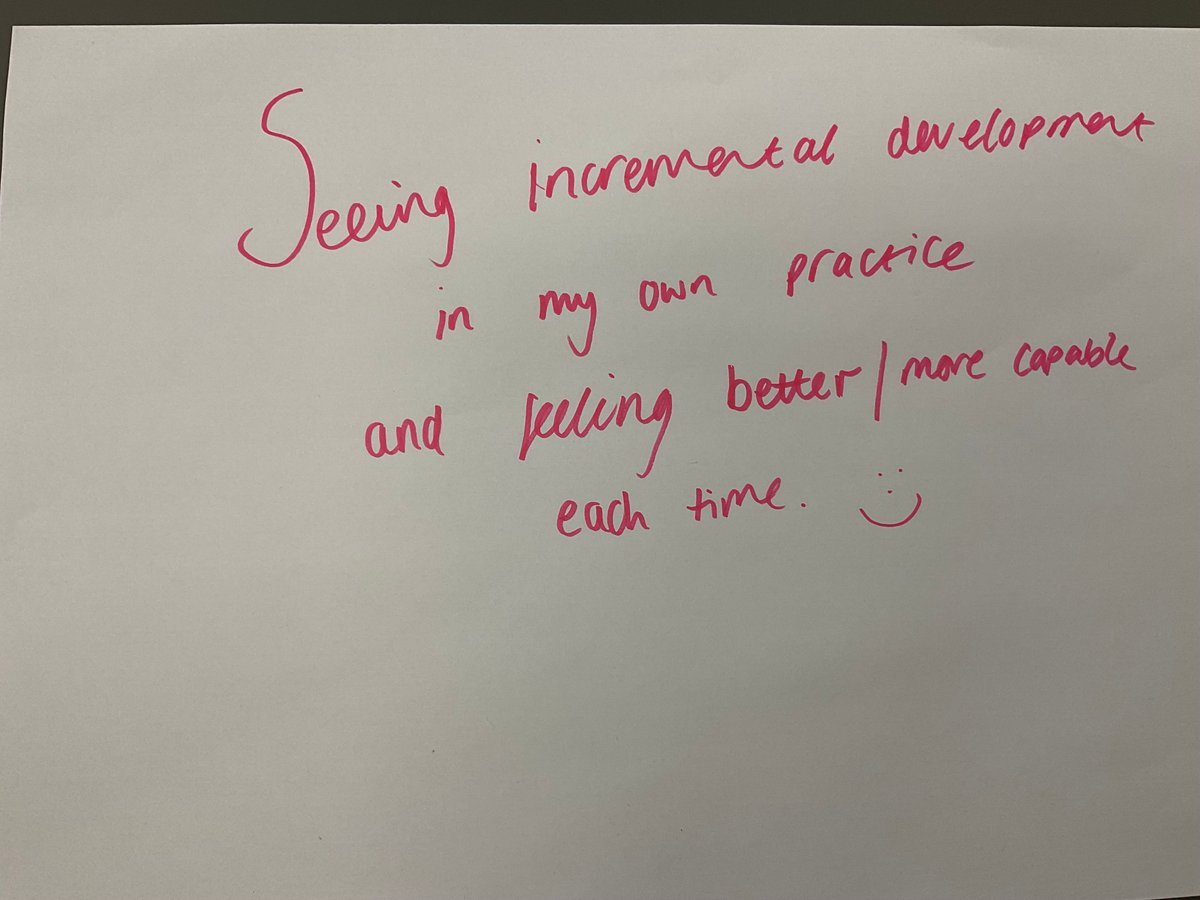 Seeing incremental development
in my own practice
and feeling better/more capable
each time. :)